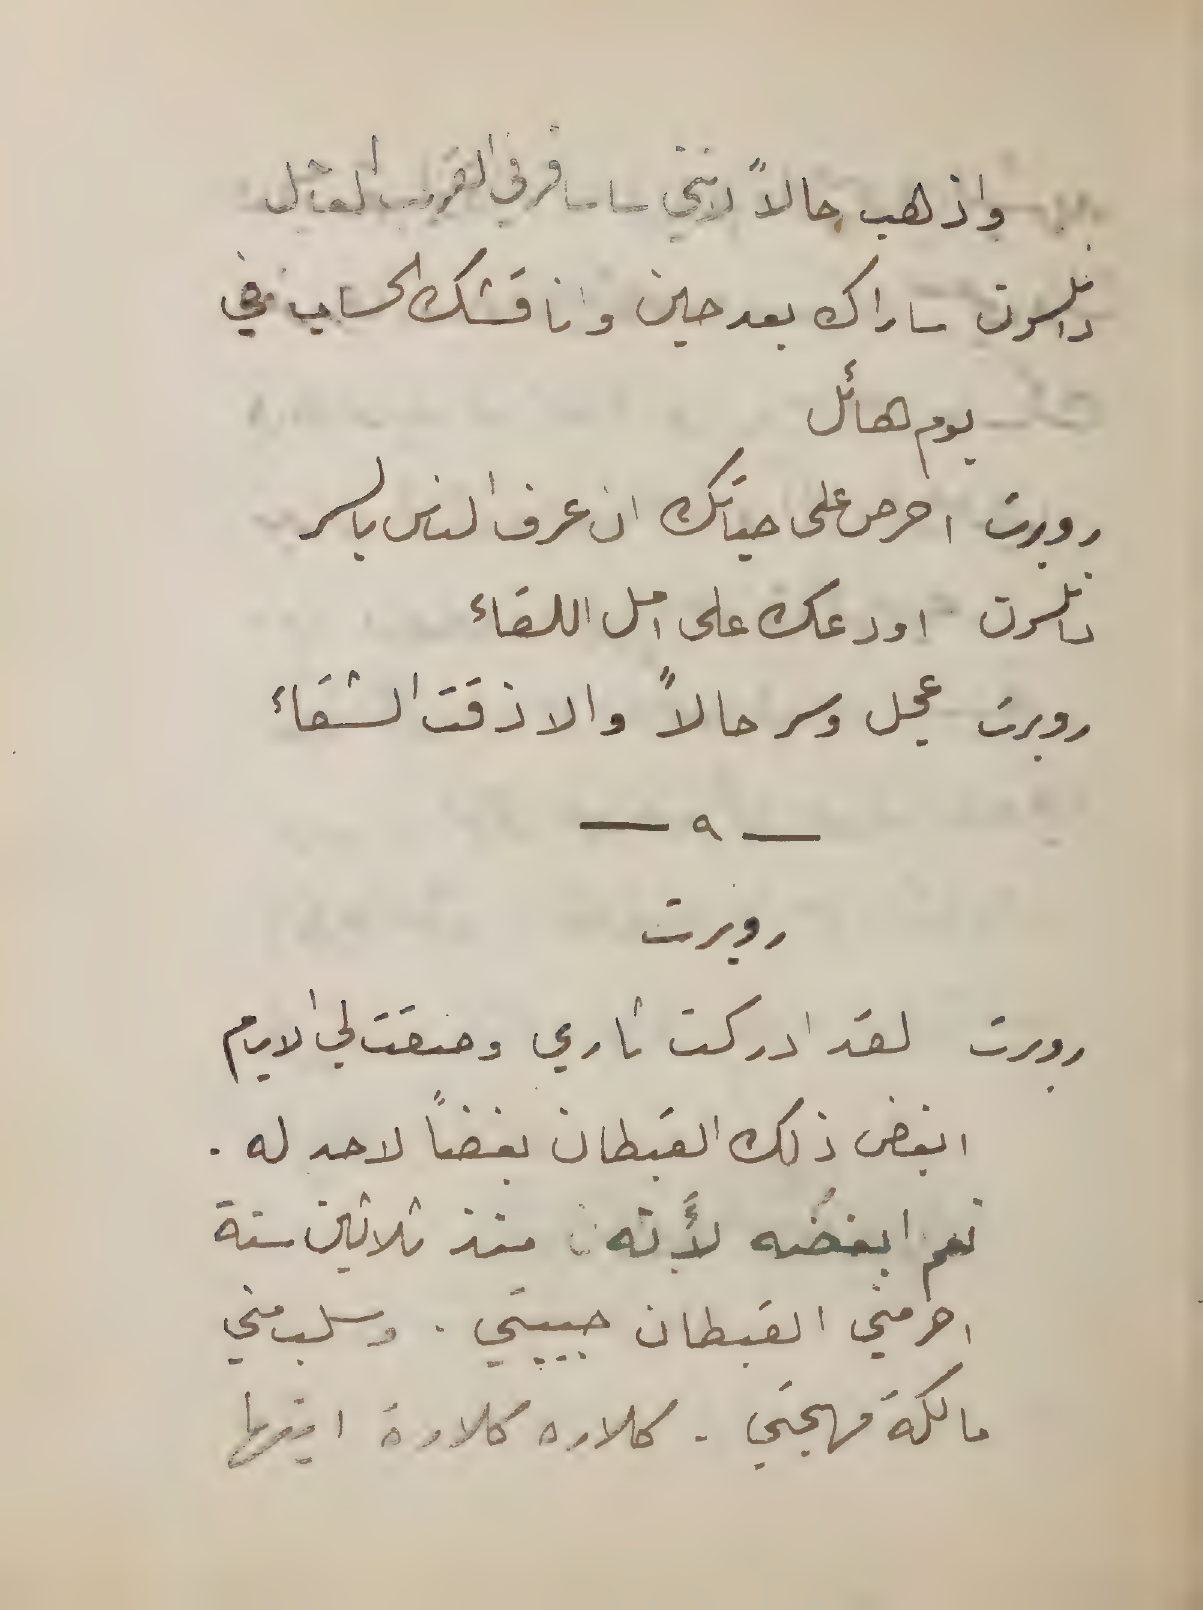 واذهب حالاً لانني ساسافر في القريب العاجل
دانلسون ساراك بعد حين واناقشك الحساب في
يوم هائل
روبرت احرص على حياتك ان عرف الناس بالسر
دانلسون اودعك على امل اللقاء
روبرت عجل وسر حالاً والا ذقت الشقاء
— ٩ —
روبرت
روبرت لقد ادركت ثاري وصفت لي الايام
ابغض ذلك القبطان بغضاً لا حد له .
نعم ابغضُه لأَنه منذ ثلاثين سنة
احرمني القبطان حبيبتي . وسلب مني
مالكة مهجتي . كلاره كلارة ايتها